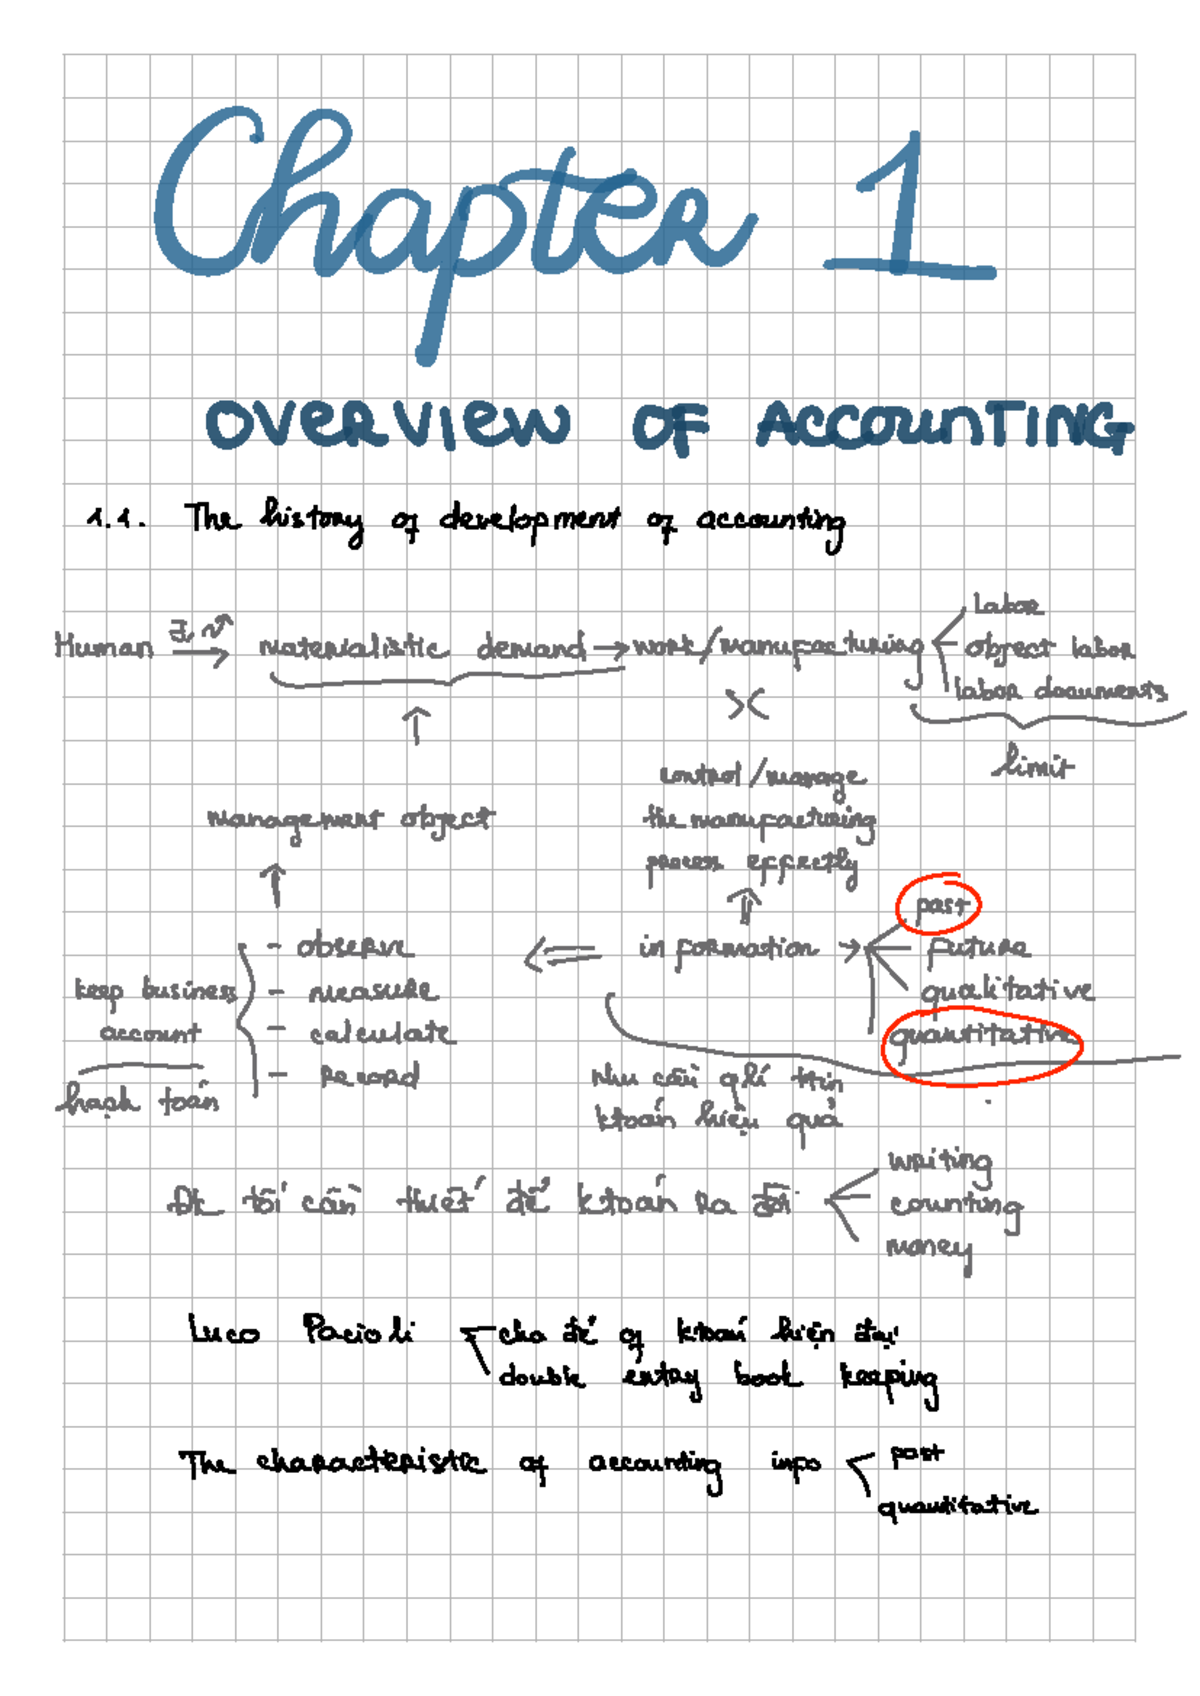 Chapter 1
OVERVIEW OF ACCOUNTING
1.1. The history of development of accounting
Labor
Human ∃, ↗ → materialistic demand → work/manufacturing object labor
labor documents
limit
control/manage
management object the manufacturing
process effectly
past
- observe ⇐ information → future
keep business - measure qualitative
account - calculate quantitative
- Record
hạch toán nhu cầu qlí ttin
ktoán hiệu quả
writing
Đk tối cần thiết để ktoán ra đời counting
money
Luco Pacioli cha đẻ of ktoán hiện đại
double entry book keeping
The characteristic of accounting info past
quantitative